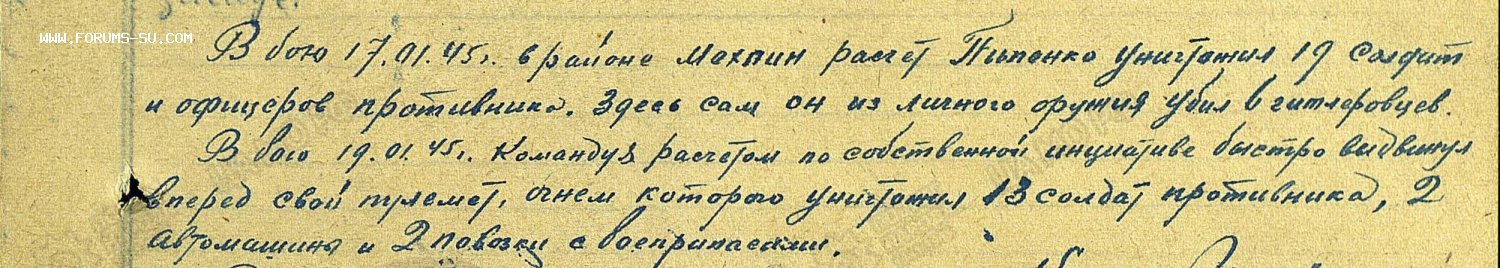 WWW.FORUMS-SU.COM
В бою 17.01.45г. в районе Мохпин расчет Пыпенко уничтожил 19 солдат
и офицеров противника. Здесь сам он из личного оружия убил 6 гитлеровцев.
В бою 19.01.45г. Командуя расчетом по собственной инициативе быстро выдвинул
вперед свой пулемет, огнем которого уничтожил 13 солдат противника, 2
автомашины и 2 повозки с боеприпасами.